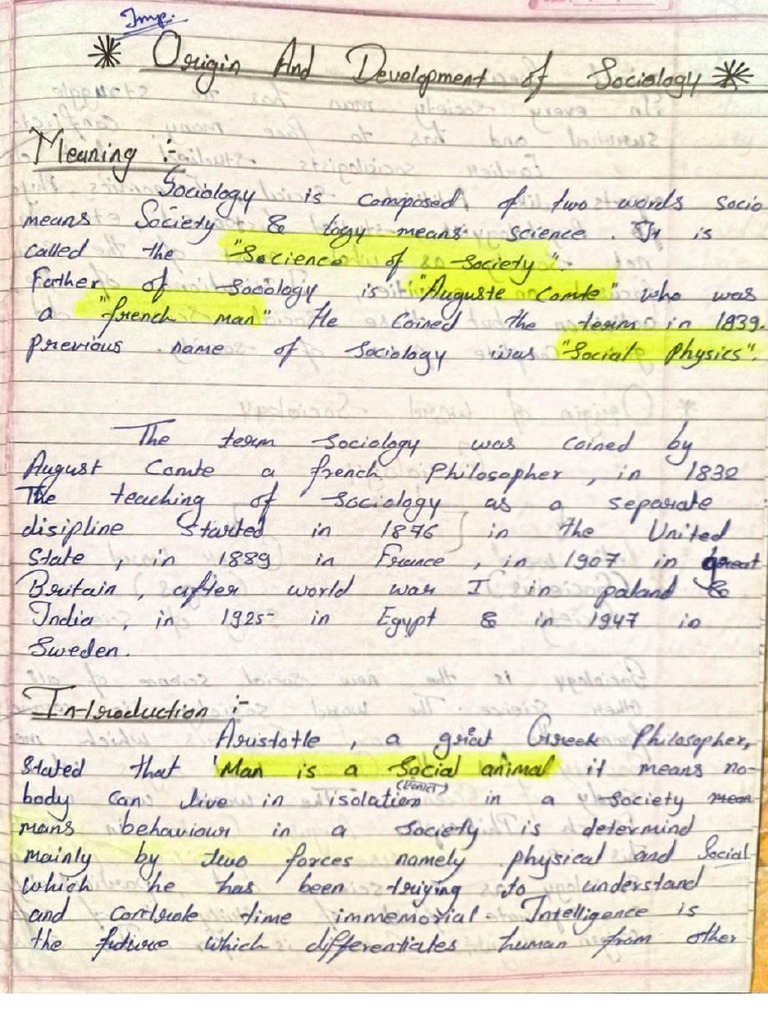 Imp.
Origin And Development of Sociology
Meaning :-
Sociology is composed of two words socio
means Society & logy means science. It is
called the "Science of Society".
Father of Sociology is "Auguste Comte" who was
a "french man" He coined the term in 1839.
Previous name of Sociology was "Social Physics".
The term sociology was coined by
August Comte a french Philosopher, in 1832
The teaching of sociology as a separate
disipline started in 1876 in the United
State, in 1889 in France, in 1907 in great
Britain, after world war I in paland &
India, in 1925 in Egypt & in 1947 in
Sweden.
Introduction :-
Aristotle, a great Greek Philosopher,
stated that 'Man is a Social animal it means no-
body can live in isolation in a society mean
mans behaviour in a society is determind
mainly by two forces namely physical and Social
which he has been truying to understand
and controle time immemorial. Intelligence is
the future which differentiates human from other